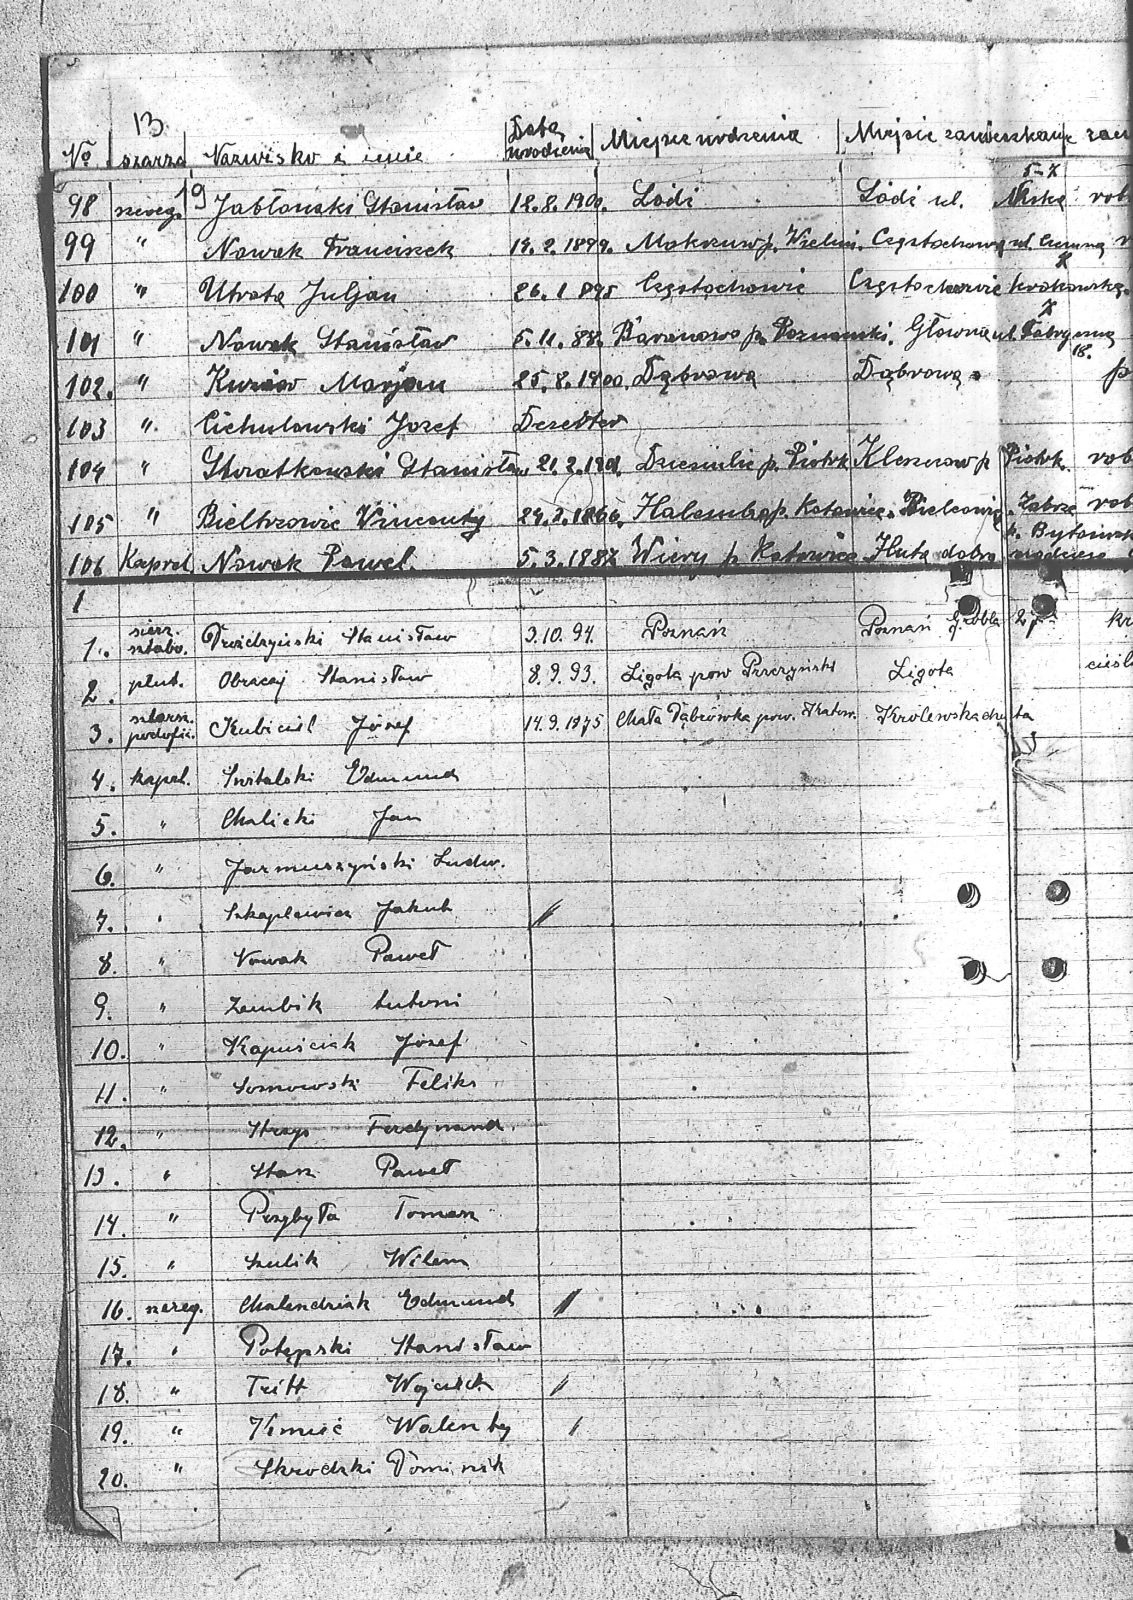 13
No szarża Nazwisko i imię Data urodzenia Miejsce urodzenia Miejsce zamieszkania
98 szereg. 19 Jabłoński Stanisław 12.8.190 Lódź Lódź ul.
99 " Nowak Franciszek 14.2.1899. p. Wieluń. Częstochowa ul.
100 " Utrata Juljan 26.1.895 Częstochowie Częstochowie krakowska
101 " Nowak Stanisław 5.11.88 Baranowo p. Poznański. Główna ul. Fabryczna 18.
102. " Marjan 25.8.1900. Dąbrowa Dąbrowa
103 " Cichulowski Jozef Dezerter
104 " Stanisław 21.2.190 p. Piotrk Kleszczow p Piotrk. rob
105 " Wincenty 24.2.1866. Halemba p. Katowice. Zabrze rob
p. Bytomska
106 Kapral Nowak Pawel. 5.3.1887 Wiery p Katowice Huta dobra
1
1. sierż. sztabo. Stanisław 3.10.94. Poznań Poznań Grobla
2. plut. Obracaj Stanisław 8.9.93. Ligota pow Pszczyński Ligota cieśl
3. starsz. podofic. Kubiciel Józef 14.9.1875 Chała Dąbrówka pow. Katow. Królewska Huta
4. kapral. Switalski Edmund
5. " Chalicki Jan
6. " Jarmuszyński Ludw.
7. " Szkaplewicz Jakub
8. " Nowak Paweł
9. " Zembik Antoni
10. " Kapuściak Józef
11. " Somowski Feliks
12. " Ferdynand
13. " Stasz Paweł
14. " Przybyła Tomasz
15. " Szulik Wilem
16. szereg. Chalendziak Edmund
17. " Potępski Stanisław
18 " Tritt Wojciech
19. " Kmieć Walenty
20. " Skrodzki Dominik